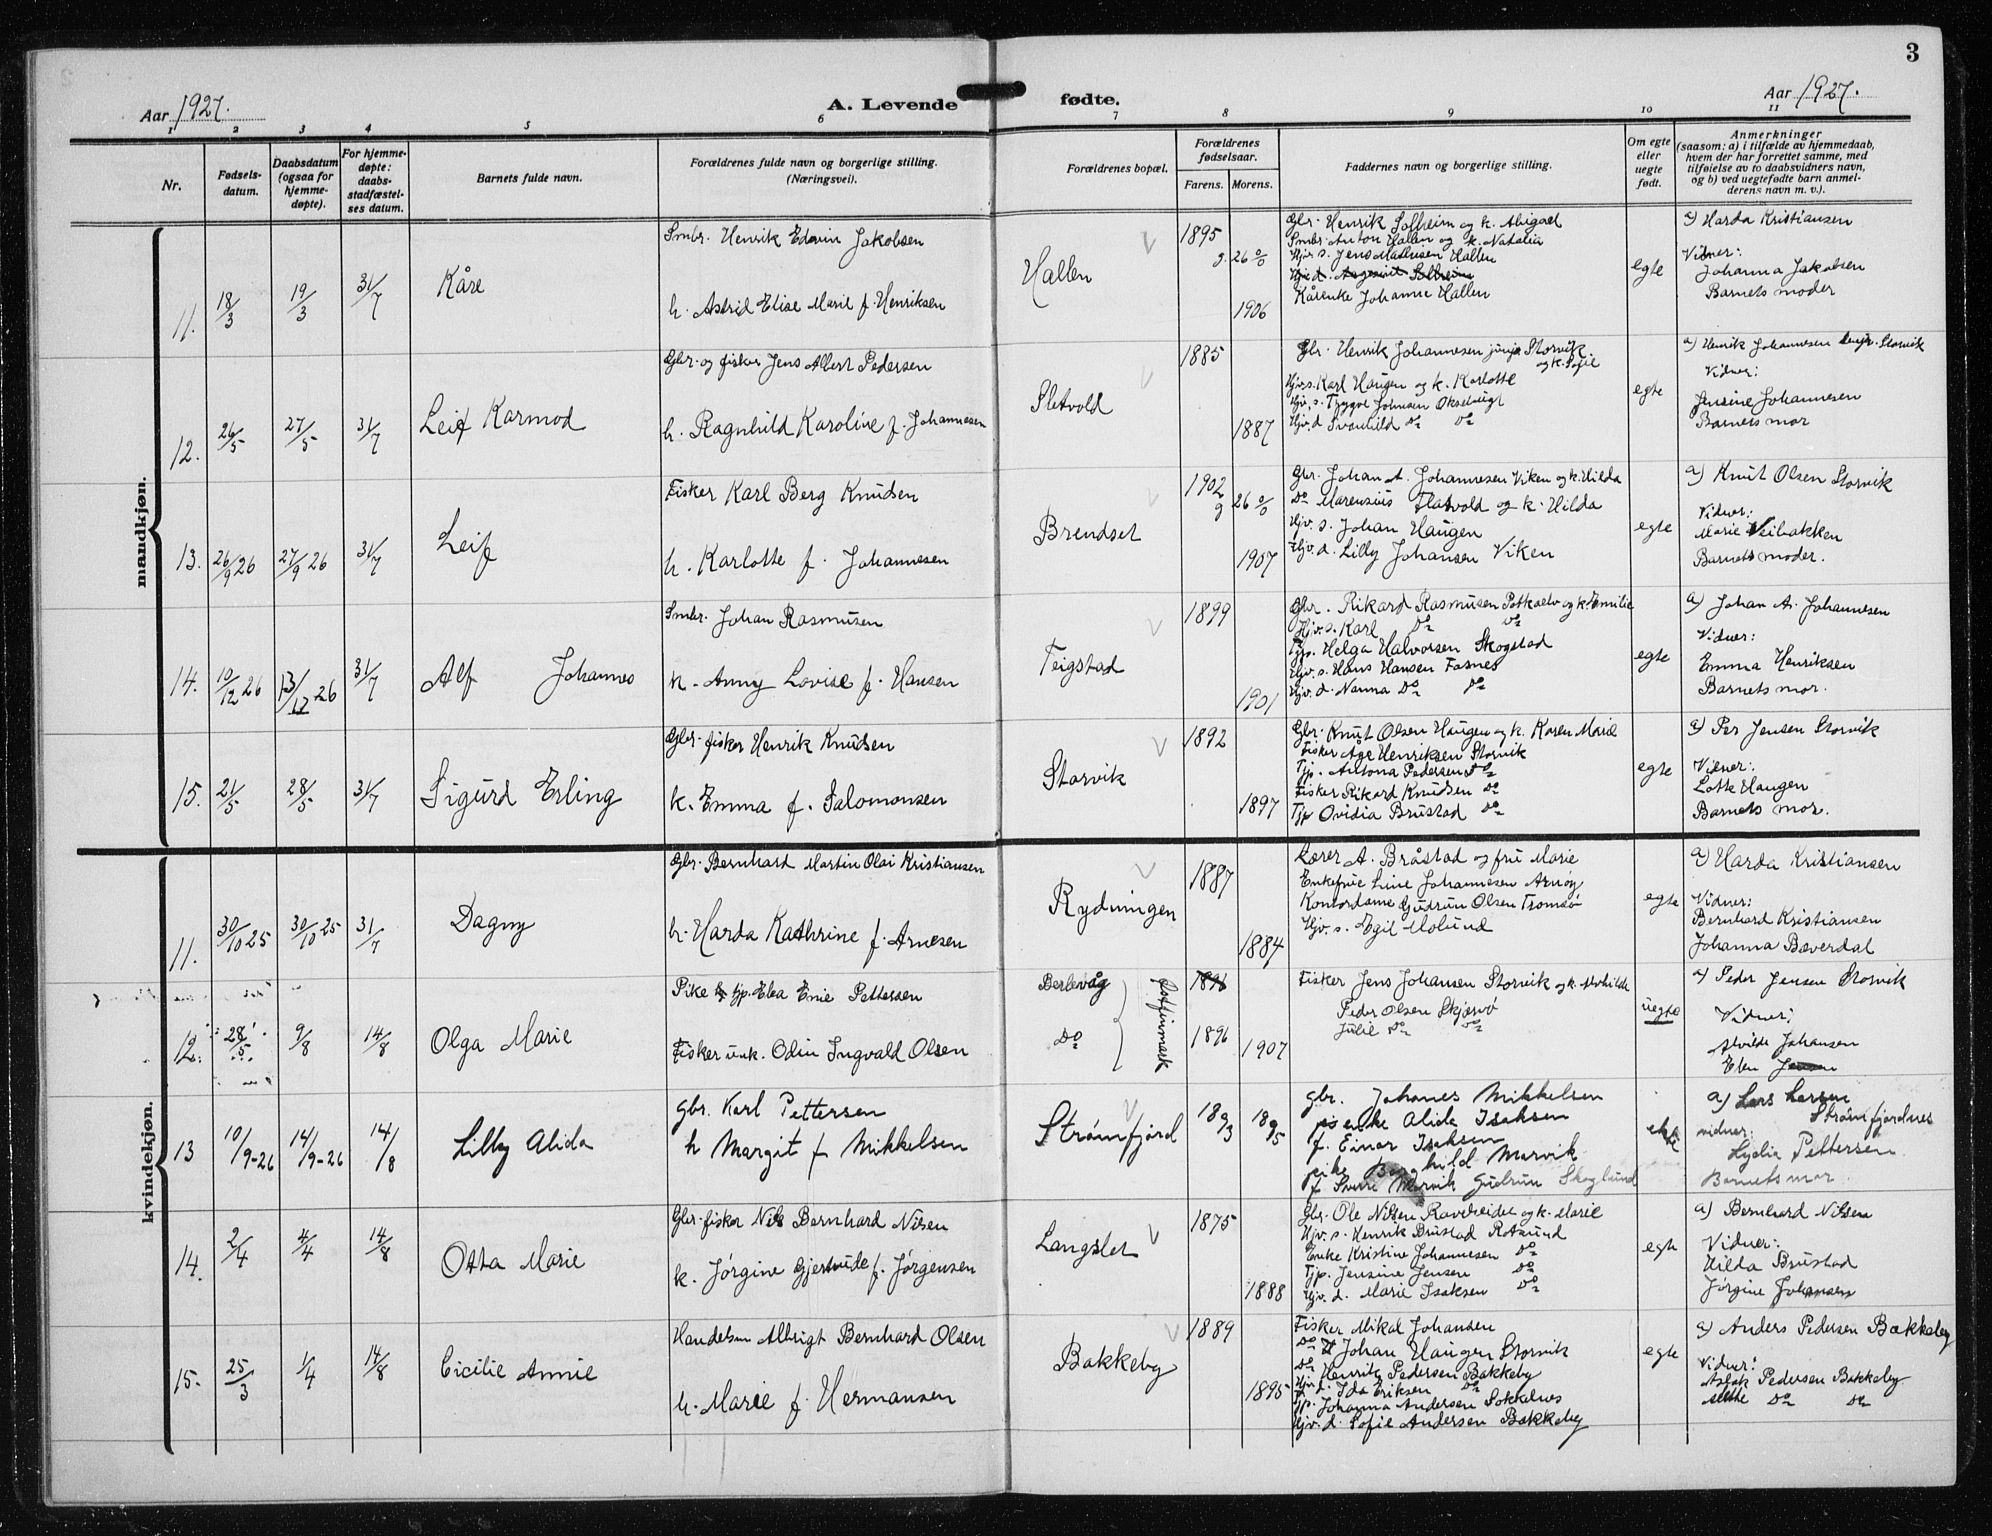 3
Aar 1927.
A. Levende fødte.
Aar 1927.
1 2 3 4 5 6 7 8 9 10 11
Nr.
Fødsels-
datum.
Daabsdatum
(ogsaa for
hjemme-
døpte).
For hjemme-
døpte:
daabs-
stadfæstel-
ses datum.
Barnets fulde navn.
Forældrenes fulde navn og borgerlige stilling.
(Næringsvei).
Forældrenes bopæl.
Forældrenes
fødselsaar.
Farens. Morens.
Faddernes navn og borgerlige stilling.
Om egte
eller
uegte
født.
Anmerkninger
(saasom: a) i tilfælde av hjemmedaab,
hvem der har forrettet samme, med
tilføielse av to daabsvidners navn,
og b) ved uegtefødte barn anmel-
derens navn m. v.).
mandkjøn.
11. 18/3 19/3 31/7 Kåre
Smbr. Henrik Edvin Jakobsen
h. Astrid Elise Marie f. Henriksen
Hallen
1895
g. 26 0/0
1906
Gbr. Henrik Solheim og k. Abigael
Smbr. Anton Hallen og k. Natalia
Hjv. s. Jens Mathisen Hallen
Kårenke Johanne Hallen
egte
a) Harda Kristiansen
Vidner:
Johanna Jakobsen
Barnets moder
12. 26/5 27/5 31/7 Leif Karmod
Gbr. og fisker Jens Albert Pedersen
h. Ragnhild Karoline f. Johannesen
Sletvold
1885
1887
Gbr. Henrik Johannesen junjr. Storvik
og k. Sofie
Hjv. s. Karl Haugen og k. Karlotte
Hjv. s. Trygve Johnsen Oksebugt
Hjv. d. Svanhild Do Do
egte
a) Henrik Johannesen Storvik
Vidner:
Jensine Johannesen
Barnets mor
13. 26/9 26 27/9 26 31/7 Leif
Fisker Karl Berg Knudsen
h. Karlotte f. Johannesen
Brendset
1902
g 26 0/0
1907
Gbr. Johan A. Johannesen Viken og k. Hilda
Do Marensius Flatvold og k. Hilda
Hjv. s. Johan Haugen
Hjv. d. Lilly Johansen Viken
egte
a) Knut Olsen Storvik
Vidner:
Marie Veibakken
Barnets moder.
14. 10/12 26 13/12 26 31/7 Alf Johannes
Smbr. Johan Rasmusen
k. Anny Lovise f. Hansen
Teigstad
1899
1901
Gbr. Rikard Rasmusen Potkaelv og k. Emilie
Hjv. s. Karl Do Do
Tjp. Helga Halvorsen Skogstad
Hjv. s. Hans Hansen Fosnes
Hjv. d. Nanna Do Do
egte
a) Johan A. Johannesen
Vidner:
Emma Henriksen
Barnets mor.
15. 21/5 28/5 31/7 Sigurd Erling
Gbr. fisker Henrik Knudsen
k. Emma f. Salomonsen
Storvik
1892
1897
Gbr. Knut Olsen Haugen og k. Karen Marie
Fisker Age Henriksen Storvik
Tjp. Antona Pedersen Do
Fisker Rikard Knudsen Do
Tjp Ovidia Brustad Do
egte
a) Per Jensen Storvik
Vidner:
Lotte Haugen
Barnets mor.
kvindekjøn.
11. 30/10 25 30/10 25 31/7 Dagny
Gbr. Bernhard Martin Olai Kristiansen
h. Harda Kathrine f. Arnesen
Rydningen
1887
1884
Lærer A. Bråstad og fru Marie
Enkefrue Line Johannesen Arnøy
Kontordame Gudrun Olsen Tromsø
Hjv. s. Egil Moland
egte
a) Harda Kristiansen
Vidner:
Bernhard Kristiansen
Johanna Bæverdal
12. 28/5 9/8 14/8 Olga Marie
Pike tjp. Elea Enie Pettersen
Fisker unk. Odin Ingvald Olsen
Berlevåg
Do
Østfinmark
1896
1896 1907
Fisker Jens Johansen Storvik og k. Alvhilde
Peder Olsen Skjervø
Julie Do Do
uegte
a) Peder Jensen Storvik
Vidner:
Alvilde Johansen
Elen Jensen
13 10/9-26 14/9-26 14/8 Lilly Alida
Gbr. Karl Pettersen
h Margit f Mikkelsen
Strømfjord
1893 1895
Gbr. Johanes Mikkelsen
enke Alida Isaksen
f. Einar Isaksen
pike Borghild Marvik
f Sverre Marvik Gudrun Skoglund
ekte
a) Lars Larsen
Strømfjordnes
vidner:
Lydia Pettersen
Barnets mor
14. 2/4 4/4 14/8 Otta Marie
Gbr. fisker Nils Bernhard Nilsen
k. Jørgine Gjertrude f. Jørgensen
Langslet
1875
1888
Gbr. Ole Nilsen Raveleidet og k. Marie
Hjv. s. Henrik Brustad Rotsund
Enke Kristine Johannesen Do
Tjp. Jensine Jensen Do
Hjv. d. Marie Isaksen Do
egte
a) Bernhard Nilsen
Vidner:
Hilda Brustad
Jørgine Johansen
15. 25/3 1/4 14/8 Cicilie Annie
Handelsm Albrigt Bernhard Olsen
h. Marie f. Hermansen
Bakkeby
1889
1895
Fisker Mikal Johansen
Do Johan Haugen Storvik
Do Henrik Pedersen Bakkeby
Hjv. d. Ida Eriksen Do
Tjp. Johanna Andersen Sokkelnes
Hjv. d. Sofie Andersen Bakkeby
egte
a) Anders Pedersen Bakkeby
Vidner:
Aslak Pedersen Bakkeby
Do Do